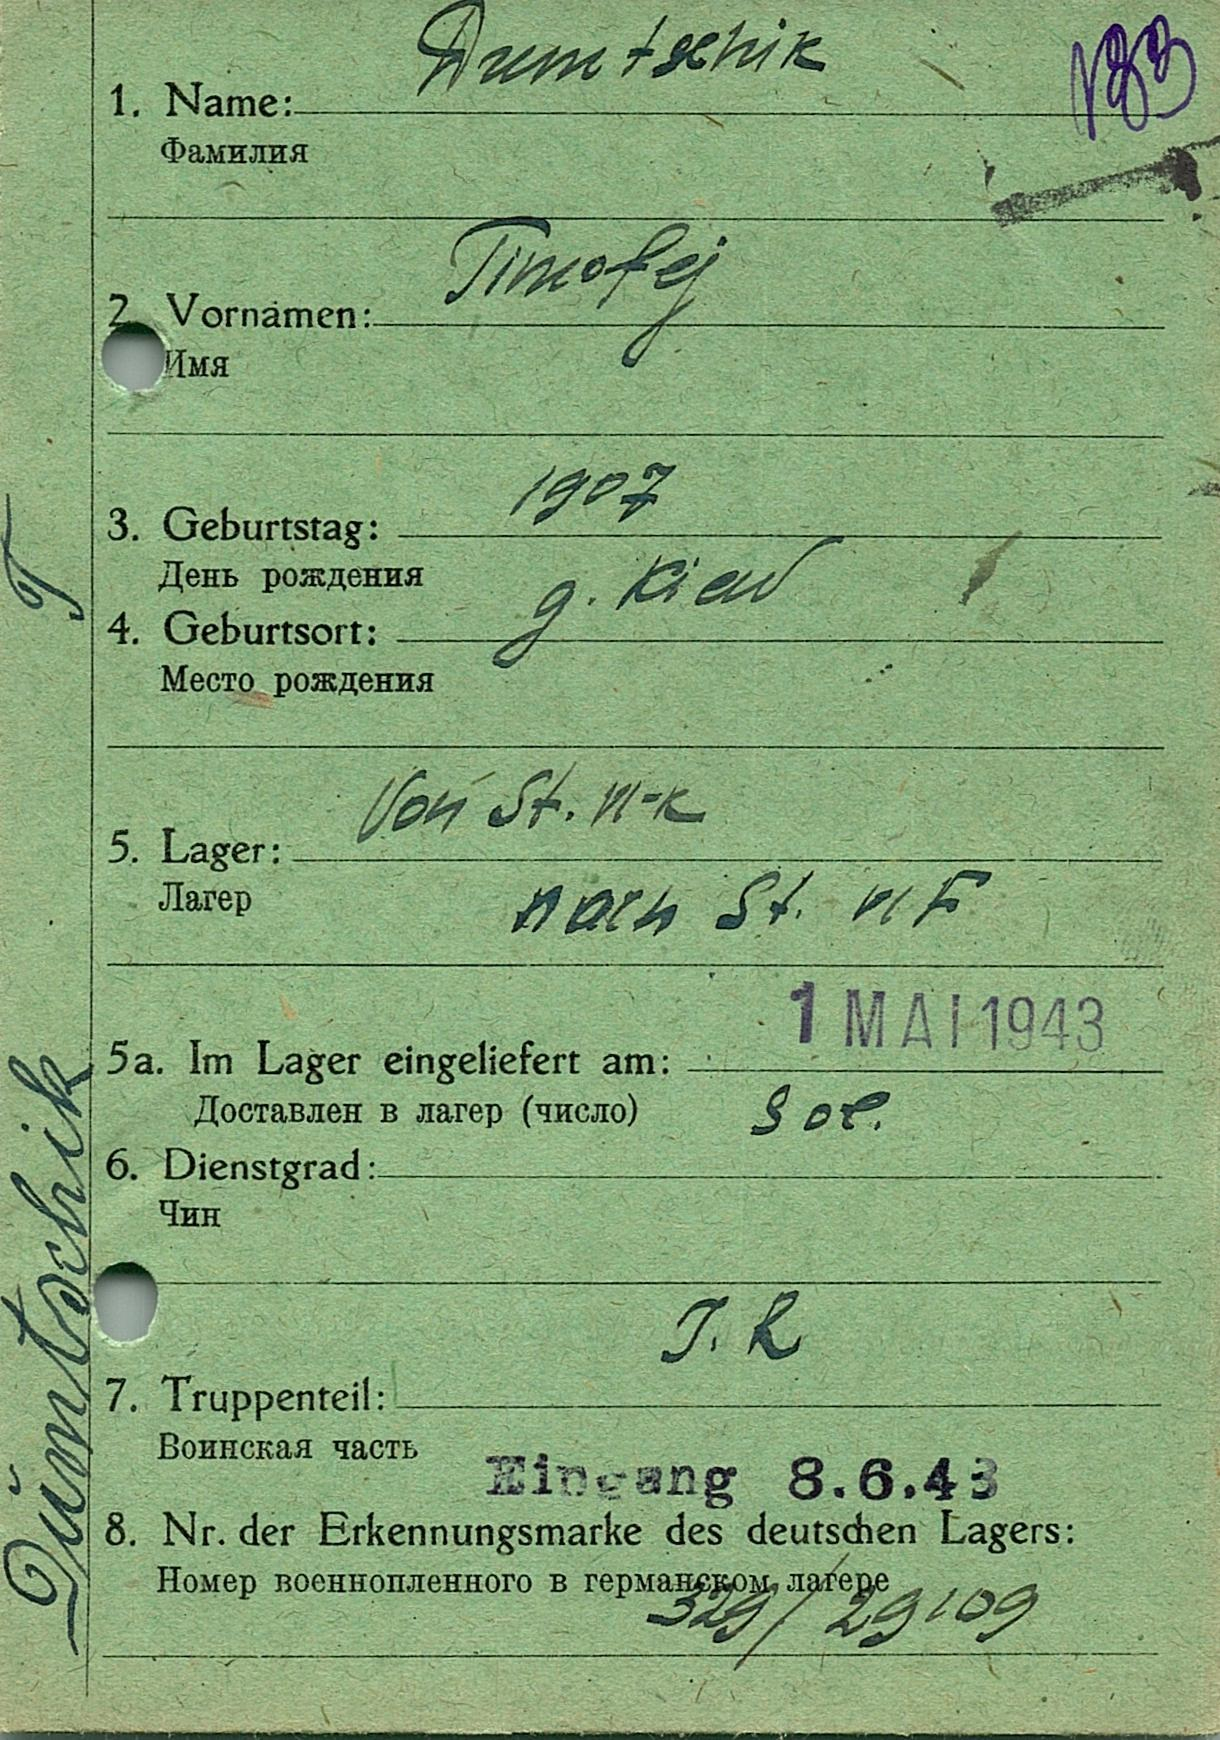 Dumtschik
1. Name:
Фамилия
Timofej
2. Vornamen:
Имя
1907
3. Geburtstag:
День рождения
g. Kiew
4. Geburtsort:
Место рождения
Von St. VI-K
5. Lager:
Лагер
nach St. VI F
1 MAI 1943
5a. Im Lager eingeliefert am:
Доставлен в лагер (число)
Sol.
6. Dienstgrad:
Чин
J. R
7. Truppenteil:
Воинская часть
Eingang 8.6.43
8. Nr. der Erkennungsmarke des deutschen Lagers:
Номер военнопленного в германском лагере
329/29109
Dümtschik T